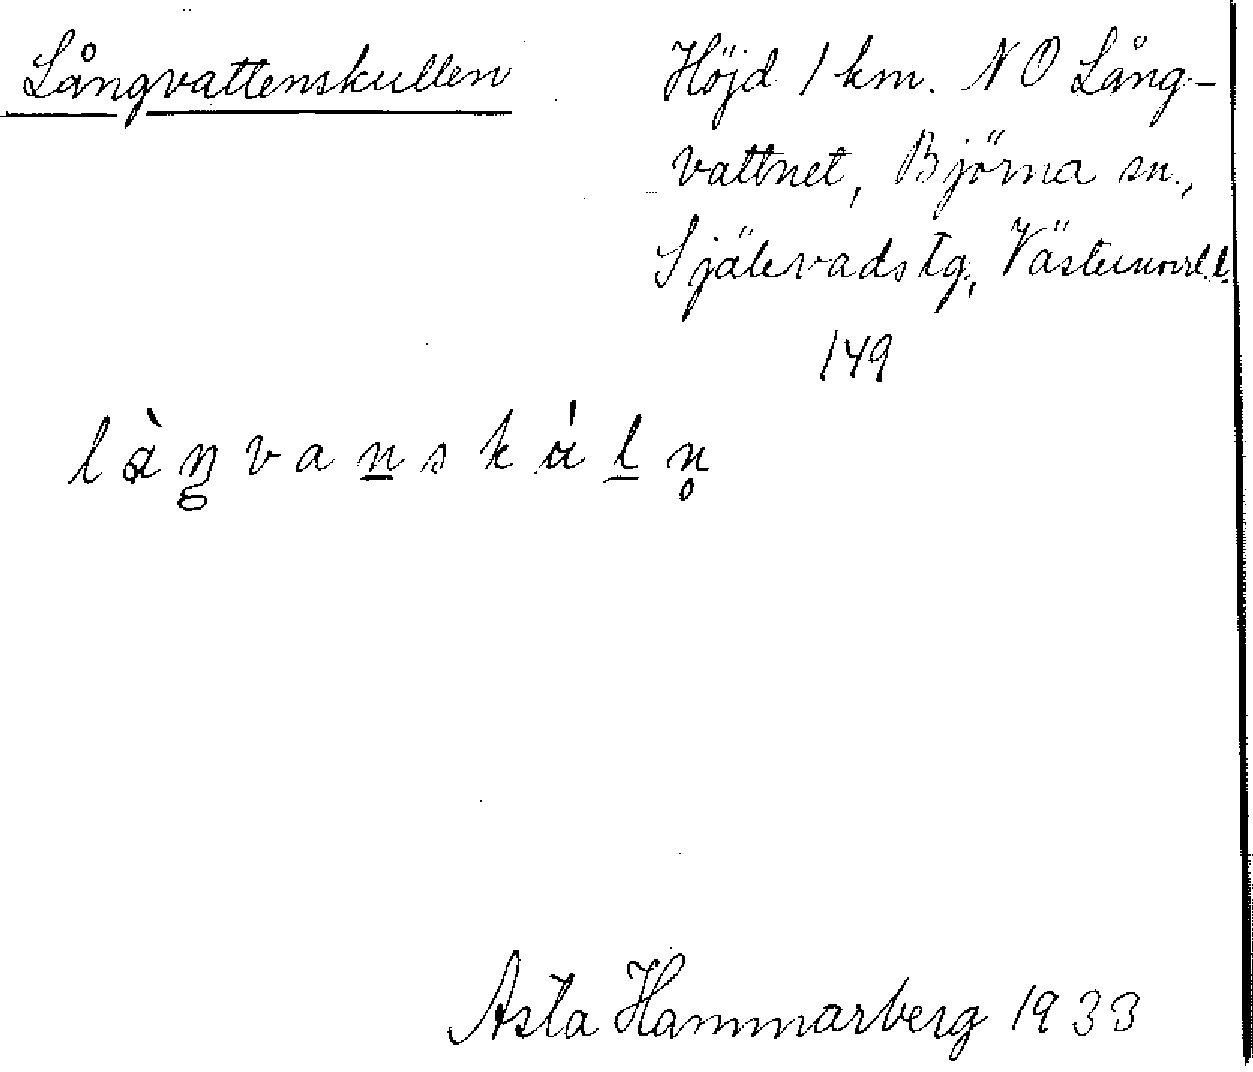 Långvattenskullen
Höjd 1 km. NO Lång-
vattnet, Björna sn.,
Själevads tg, Västernorrl. l.
149
Asta Hammarberg 1933